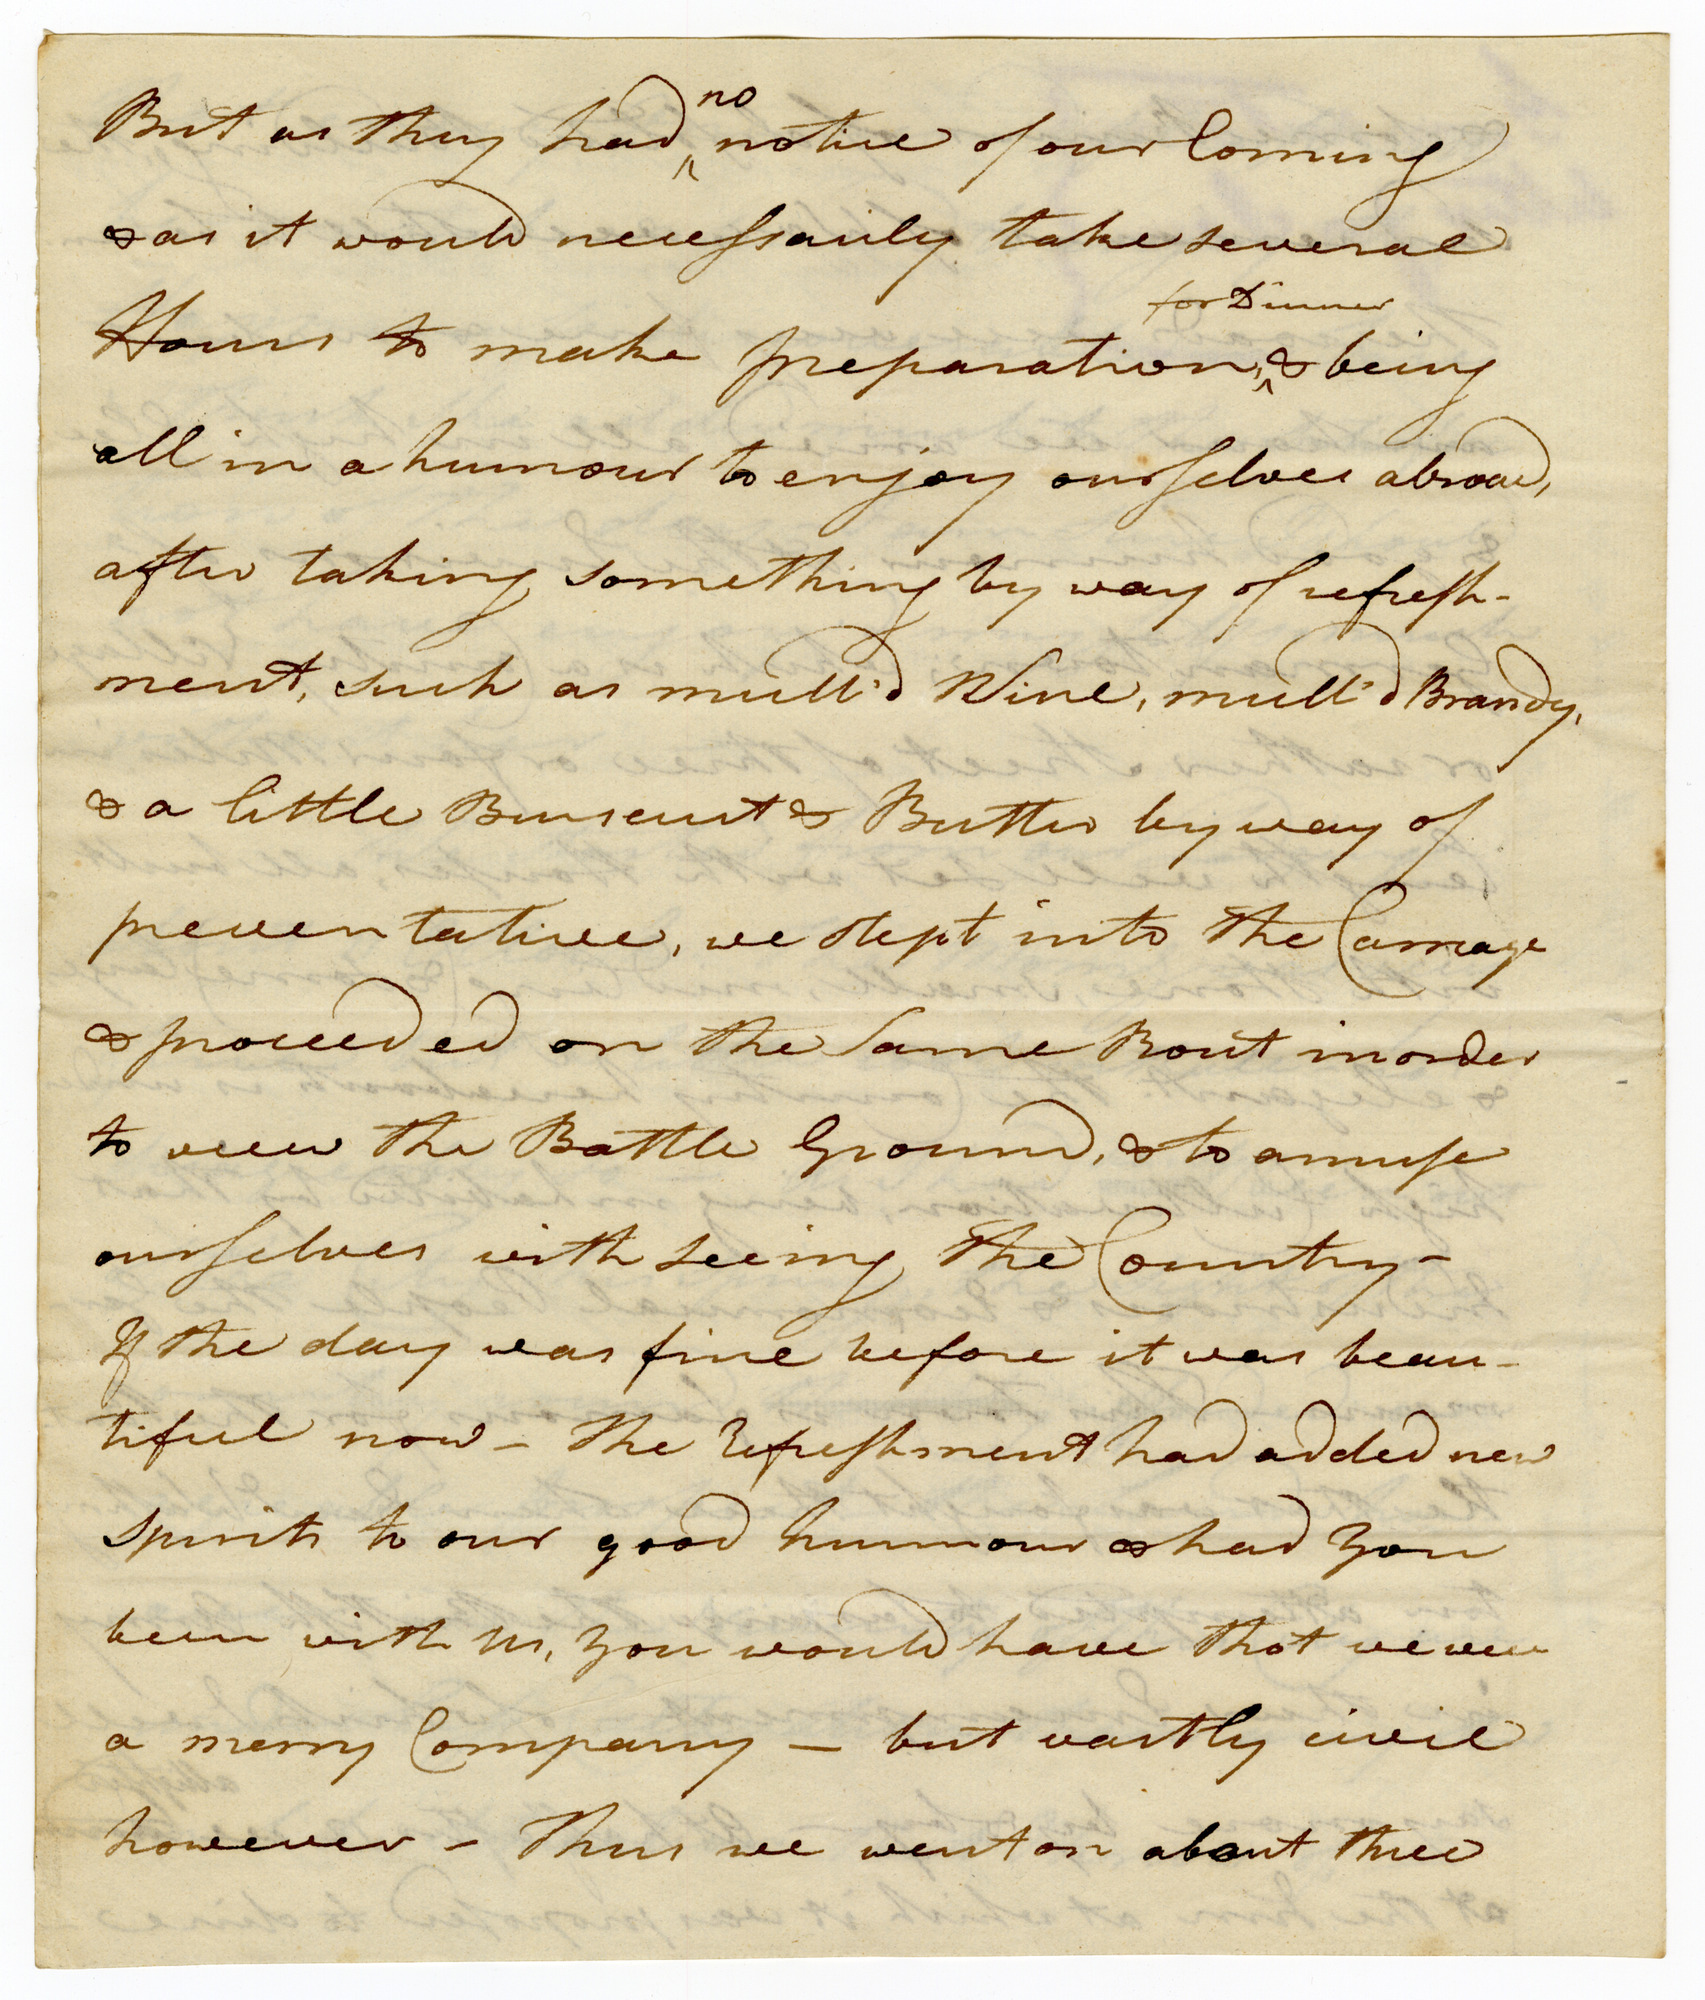 But as they had no notice of our Coming
& as it would necessarily take several
Hours to make preparation, for Dinner & being
all in a humour to enjoy ourselves abroad,
after taking something by way of refresh-
ment, such as mull'd Wine, mull'd Brandy,
& a little Buiscuit & Butter by way of
preventative, we stept into the Carriage
& proceeded on the Same Rout in order
to view the Battle Ground, & to amuse
ourselves with seeing the Country -
If the day was fine before it was beau-
tiful now - the Refreshment had added new
spirits to our good humour & had you
been with us, you would have that we were
a merry Company - but vastly civil
however - Thus we went on about three